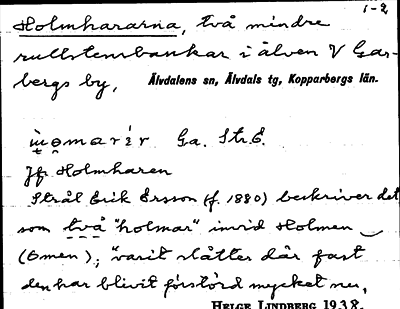 1-2
Holmhararna, två mindre
rullstensbankar i älven V Gas-
bergs by, Älvdalens sn, Älvdals tg, Kopparbergs län.
Ga. Str.E.
Jfr Holmharen
Strål Erik Ersson (f. 1880) beskriver det
som två "holmar" invid Holmen
(Omen); "varit slåtter där fast
den har blivit förstörd mycket nu,
HELGE LINDBERG 1938.